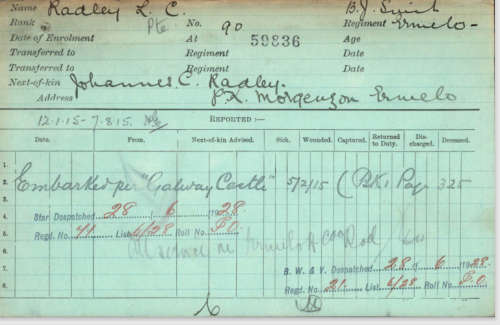 Name Radley L. C. B.J. Smith
Rank Pte No. 90 Regiment Ermelo
Date of Enrolment At 59836 Age
Transferred to Regiment Date
Transferred to Regiment Date
Next-of-kin Johannes. C. Radley.
Address P.K. Morgenzon Ermelo
12.1.15-7.8.15. REPORTED :—
Date. From. Next-of-kin Advised. Sick. Wounded. Captured. Returned to Duty. Discharged. Deceased.
1.
2. Embarked per "Galway Castle" 5/2/15 (BK1 Page 325
3.
4. Star Despatched 28 / 6 /1928.
5. Regd. No. 41 List 6/28 Roll No. P.O.
6. Ermelo
7. B. W. & V. Despatched 28 / 6 /1928.
8. Regd. No. 21. List 6/28 Roll No. P.O.